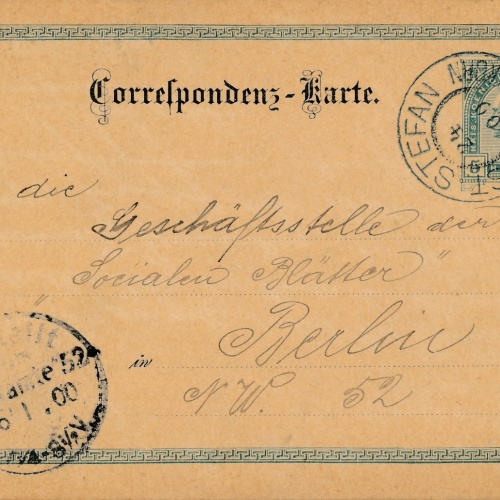 Correspondenz-Karte.
ST. STEFAN
5
die
Geschäftsstelle der
„Socialen Blätter"
in Berlin
NW. 52
52
1.00